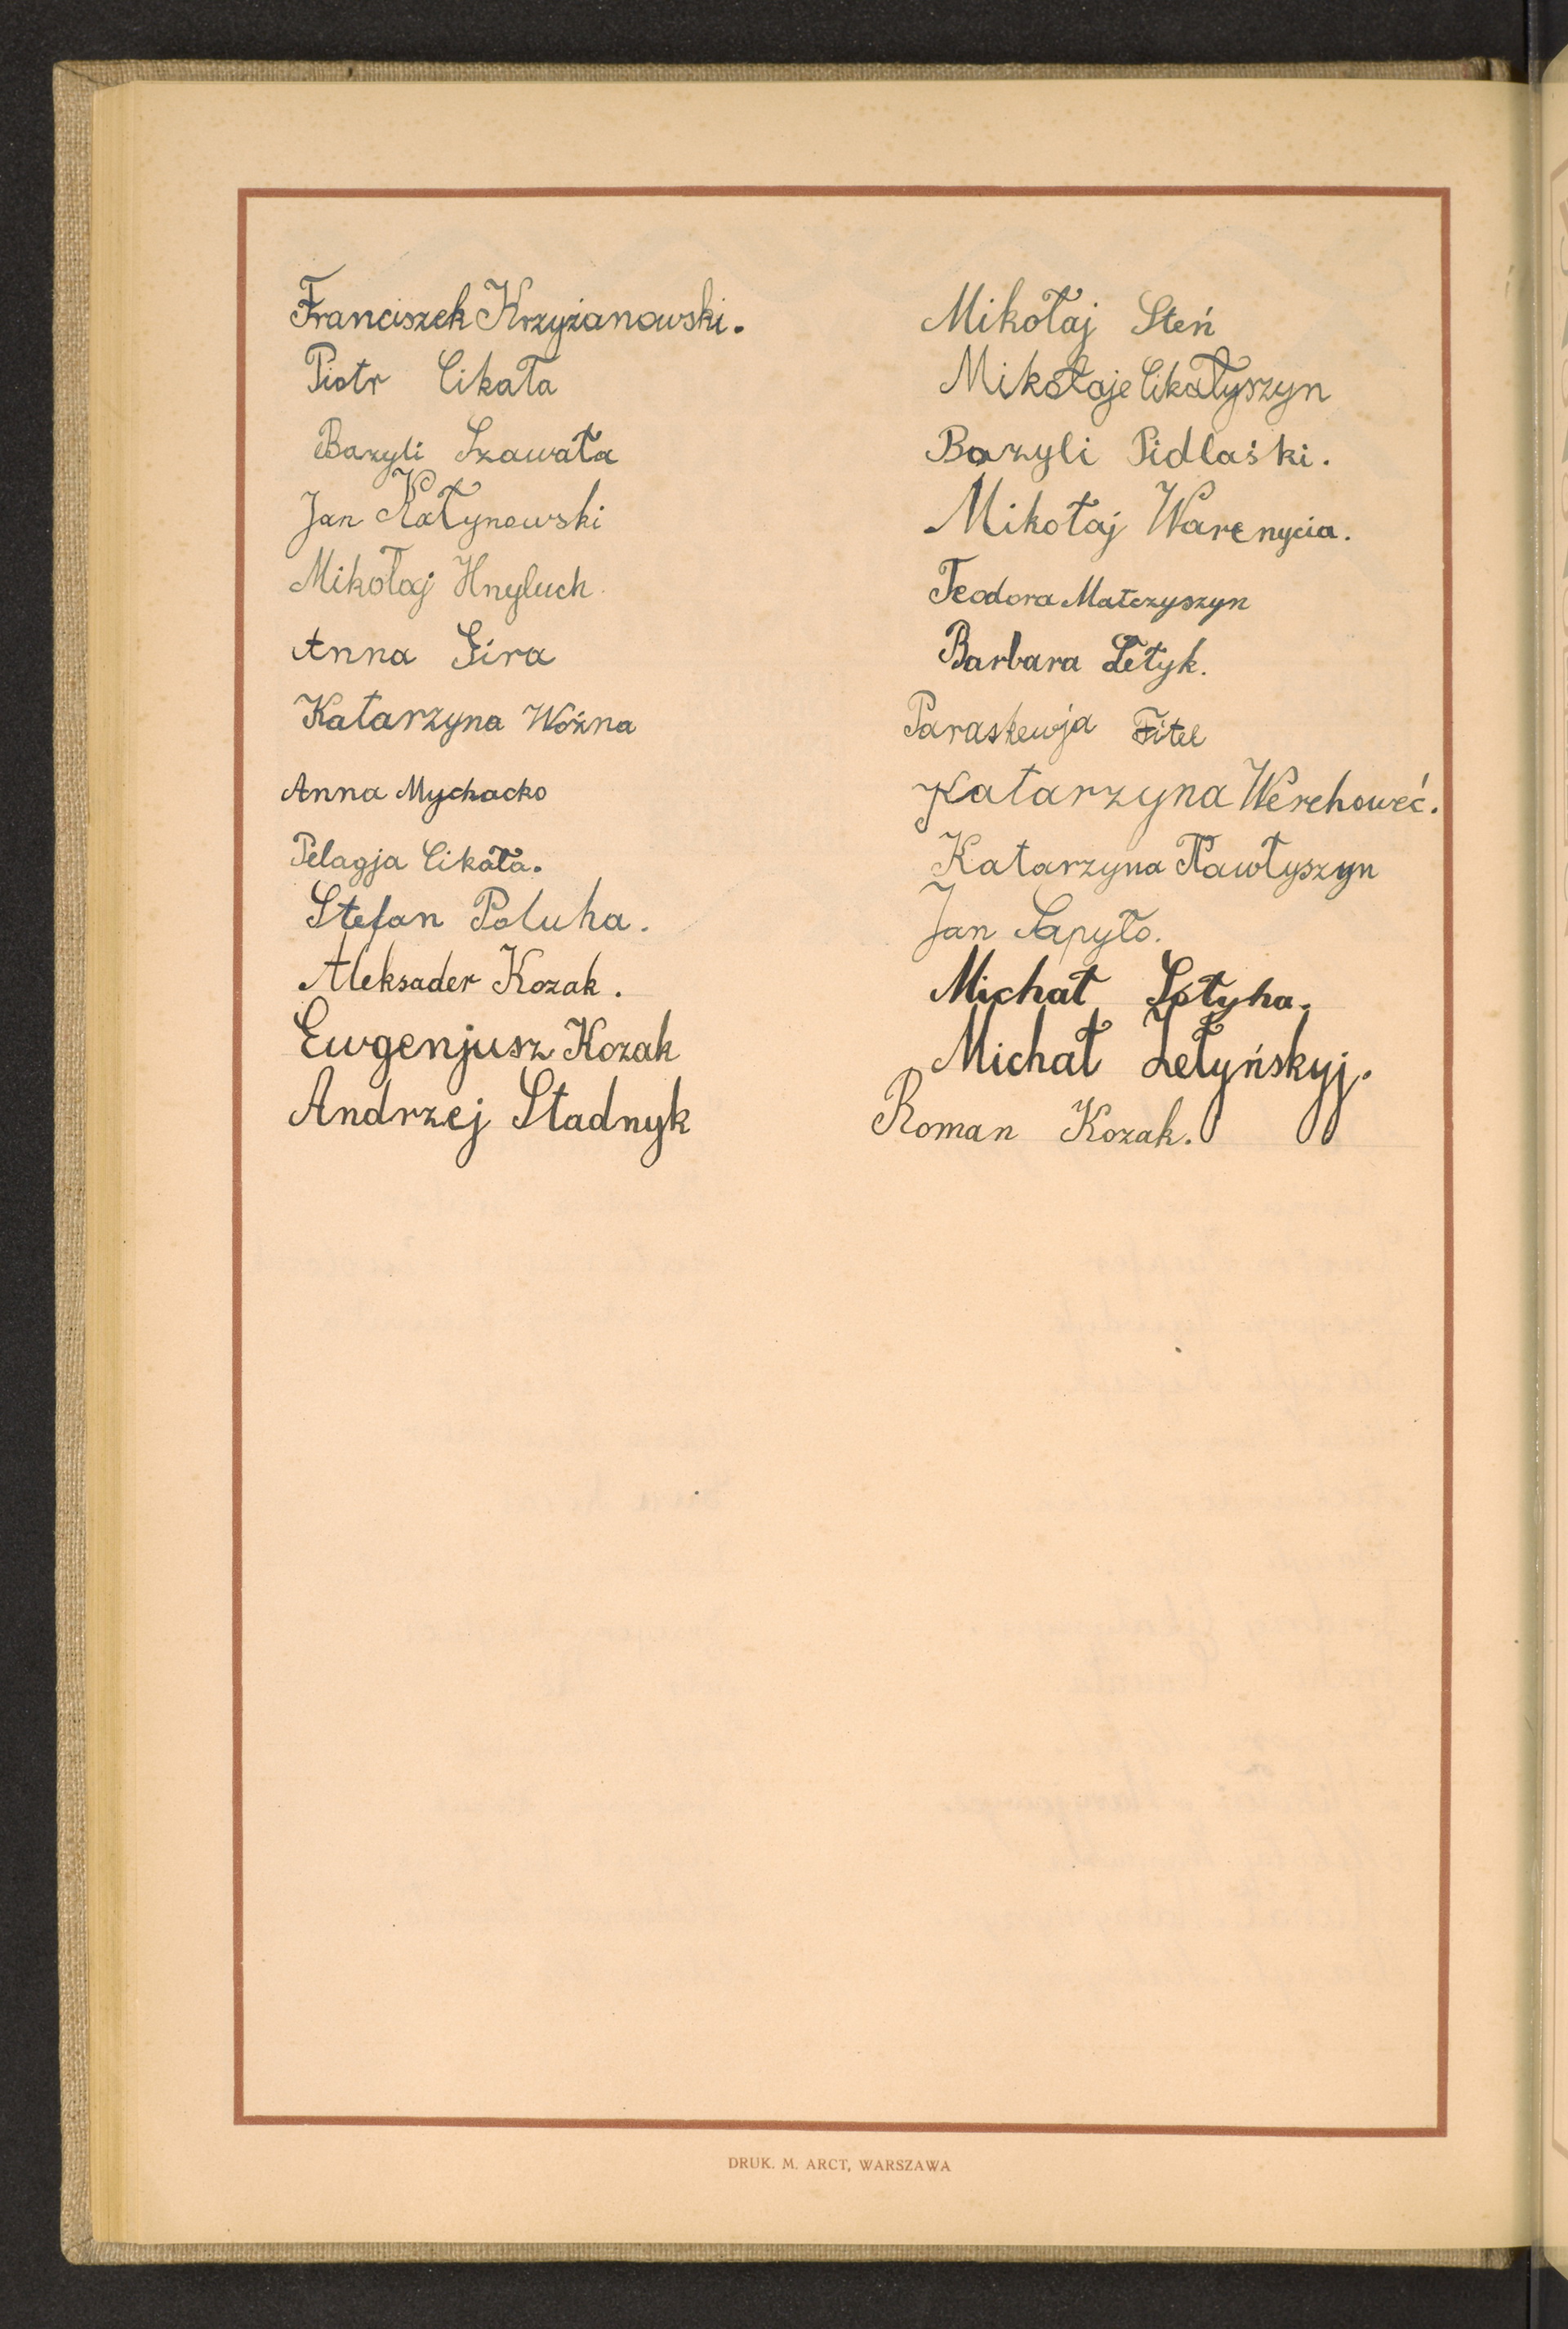 Franciszek Krzyżanowski.
Piotr Cikała
Bazyli Szawała
Jan Kałynowski
Mikołaj Hnyluch
Anna Gira
Katarzyna Woźna
Anna Mychacko
Pelagja Cikała.
Stefan Poluha.
Aleksader Kozak.
Ewgenjusz Kozak
Andrzej Stadnyk
Mikołaj Steń
Mikołaje Cikałyszyn
Bazyli Pidlaśki.
Mikołaj Warenycia.
Teodora Małczyszyn
Barbara Łetyk.
Paraskewja Fitel
Katarzyna Werehoweć.
Katarzyna Pawłyszyn
Jan Sapyło.
Michał Łotyha.
Michał Łetyńskyj.
Roman Kozak.
DRUK. M. ARCT, WARSZAWA